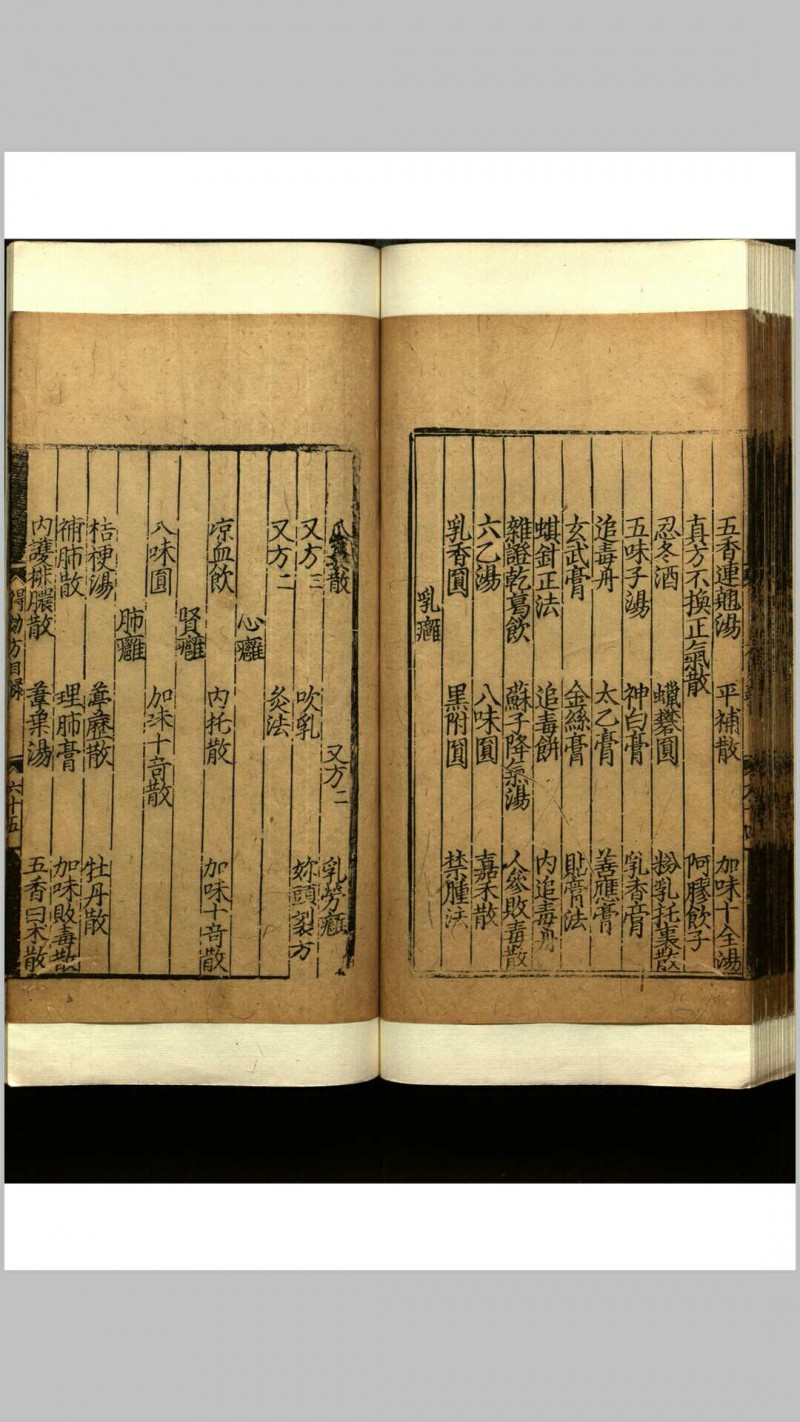 五香連翹湯 平補散 加味十全湯
真方不換正氣散 阿膠飲子
忍冬酒 蠟礬圓 粉乳托裏散
五味子湯 神白膏 乳香膏
追毒丹 太乙膏 善應膏
玄武膏 金絲膏 貼膏法
蜞針正法 追毒餅 內追毒丹
雜證乾葛飲 蘇子降氣湯 人參敗毒散
六乙湯 八味圓 嘉禾散
乳香圓 黑附圓 禁腫法
乳癰
散 又方二 乳勞癰
又方三 吹乳 妳頭裂方
又方二 灸法
心癰
凉血飲 內托散 加味十奇散
腎癰
八味圓 加味十奇散
肺癰
桔梗湯 葶藶散 牡丹散
補肺散 理肺膏 加味敗毒散
內護排膿散 葦葉湯 五香白朮散
得効方目錄 六十五